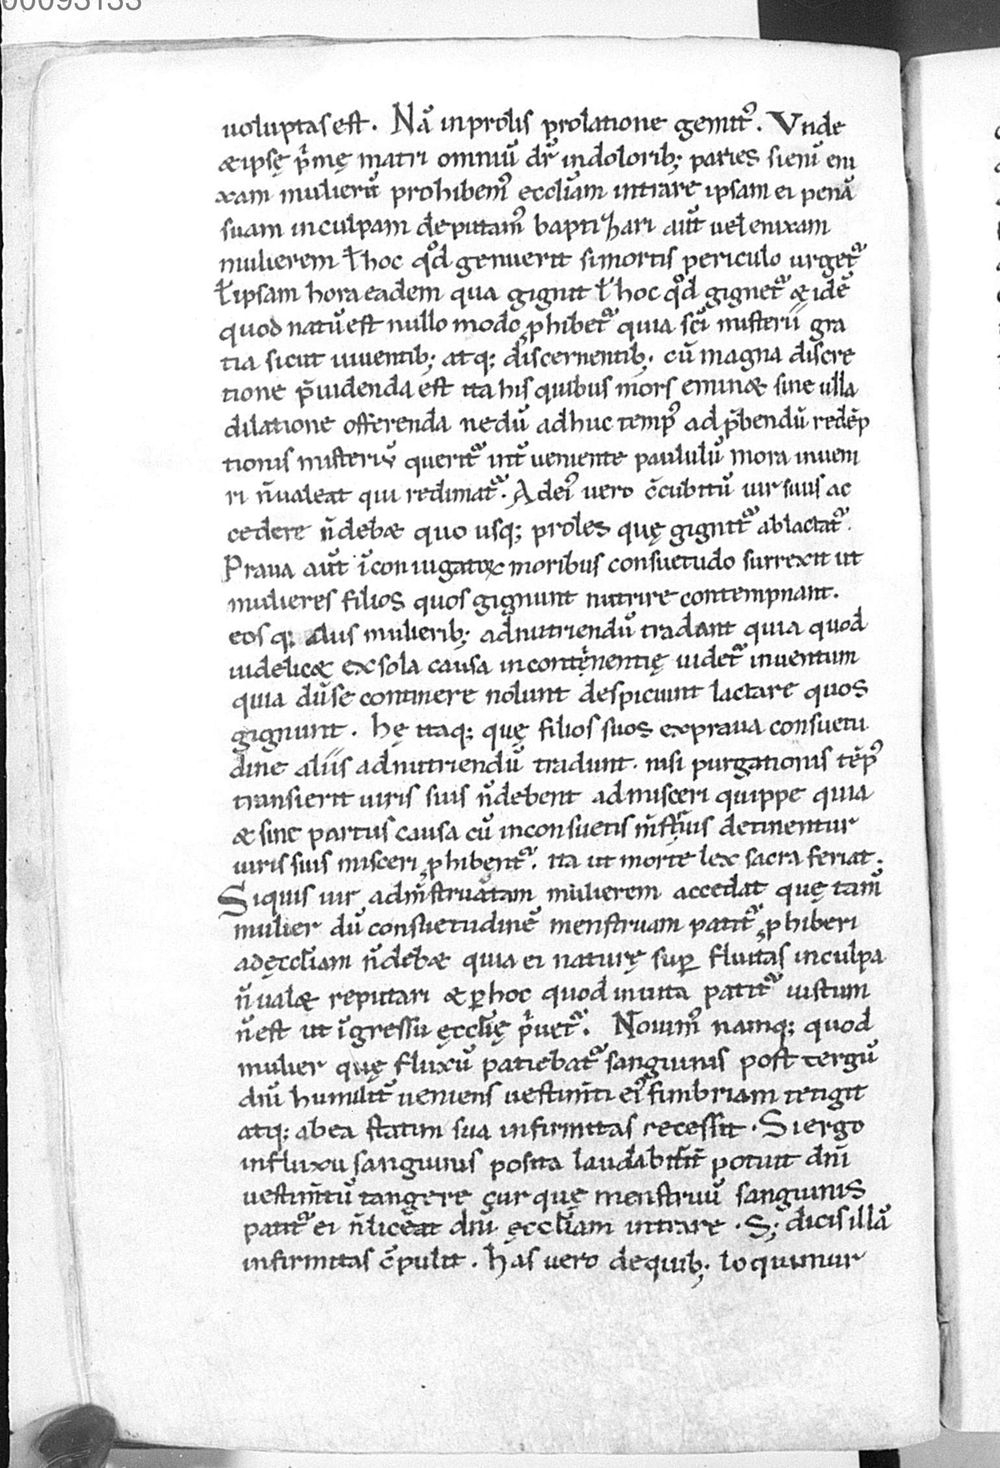 00093133
uoluptas est. Nā in prolis prolatione gemit᷒. Vnde
& ipsę p̄mę matri omniū dr̄ in dolorib; paries si enī eni
xam mulierū prohibem᷒ eccl̄iam intrare ipsam ei penā
suam in culpam deputam᷒ baptizari aūt uel enixam
mulierem ł hoc qd̄ genuerit si mortis periculo urget᷒
ł ipsam hora eadem qua gignit ł hoc qd̄ gignet᷒ & idē
quod natū est nullo modo ꝓhibet᷒ quia sc̄i misterii gra
tia sicut uiuentib; atq; discernentib; cū magna discre
tione p̄uidenda est ita his quibus mors emin& sine ulla
dilatione offerenda ne dū adhuc temp᷒ ad p̄bendū redēp
tionis misteriū querit᷒ int̄ ueniente paululū mora inueni
ri n̄ ualeat qui redimat᷒. Ad ei᷒ uero c̄cubitū uir suus ac
cedere n̄ deb& quo usq; proles quę gignit᷒ ablactat᷒.
Praua aūt ī coniugatoꝝ moribus consuetudo surrexit ut
mulieres filios quos gignunt nutrire contempnant.
eos q; aliis mulierib; ad nutriendū tradant quia quod
uidelic& ex sola causa incontinentię uidet᷒ inuentum
quia dū se continere nolunt despiciunt lactare quos
gignunt. hę itaq; quę filios suos ex praua consuetu
dine aliis ad nutriendū tradunt. nisi purgationis tēp᷒
transierit uiris suis n̄ debent admisceri quippe quia
& sine partus causa cū in consuetis m̄struis detinentur
uiris suis misceri ꝓhibent᷒. ita ut morte lex sacra feriat.
Si quis uir ad m̄struātam mulierem accedat quę tam̄
mulier dū consuetudinē menstruam patit᷒ ꝓhiberi
ad ęccl̄iam n̄ deb& quia ei naturę suꝑ fluitas in culpa
n̄ ual& reputari & ꝑ hoc quod inuita patit᷒ iustum
n̄ est ut īgressu ęccl̄ię p̄uet᷒. Nouim᷒ namq; quod
mulier quę fluxū patiebat᷒ sanguinis post tergū
dn̄i humilit̄ ueniens uestim̄ti ei᷒ fimbriam tetigit
atq; ab ea statim sua infirmitas recessit. Si ergo
in fluxu sanguinis posita laudabilit̄ potuit dn̄i
uestim̄tū tangere cur quę menstruū sanguinis
patit᷒ ei n̄ liceat dn̄i ęccl̄iam intrare. S; dicis illā
infirmitas c̄pulit. has uero de quib; loquimur